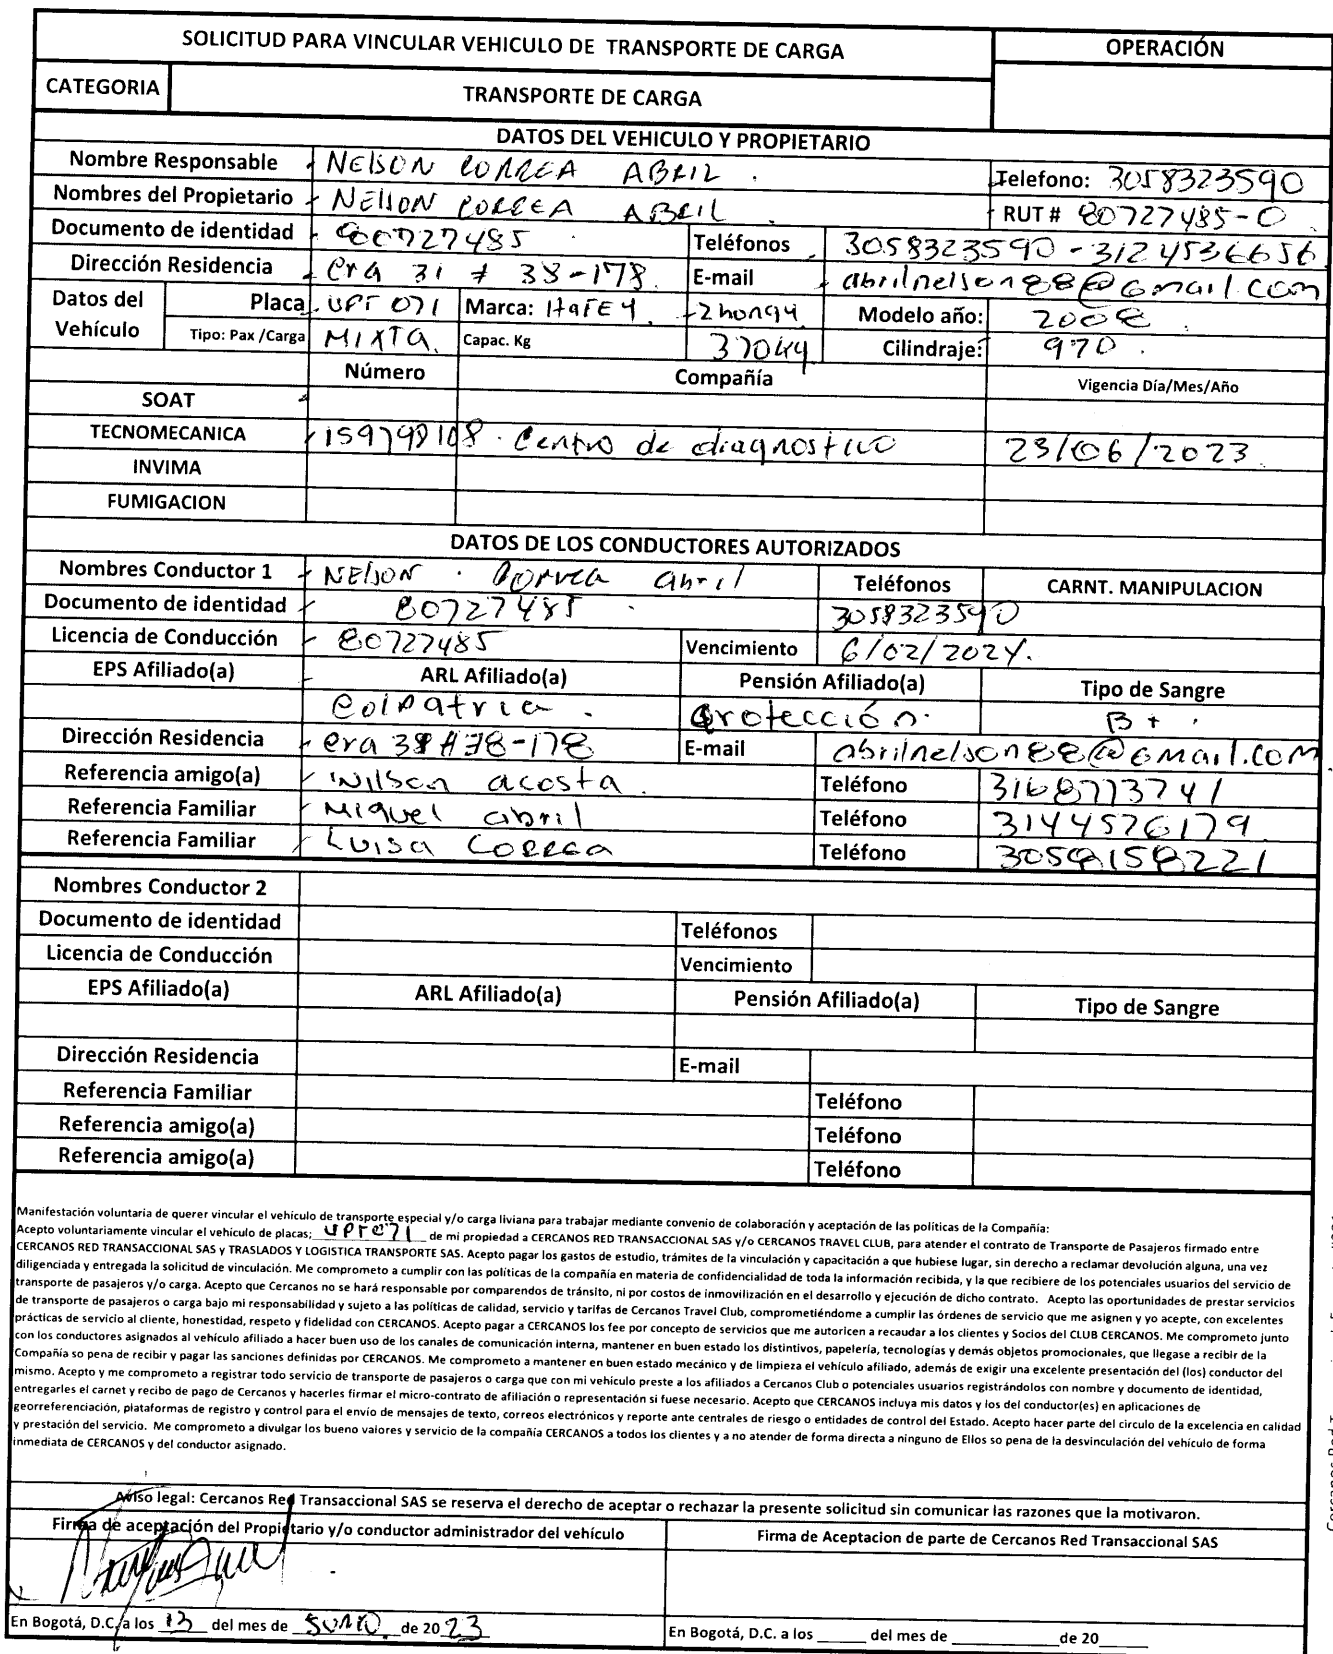 SOLICITUD PARA VINCULAR VEHICULO DE TRANSPORTE DE CARGA
OPERACIÓN
CATEGORIA TRANSPORTE DE CARGA
DATOS DEL VEHICULO Y PROPIETARIO
Nombre Responsable NELSON CORREA ABRIL Telefono: 3058323590
Nombres del Propietario NELSON CORREA ABRIL RUT # 80727485-0
Documento de identidad Teléfonos 3058323590 - 3124536656
Dirección Residencia cra 31 # 38-178 E-mail abrilnelson88@Gmail.com
Datos del Vehículo Placa UPT 071 Marca: Modelo año: 2008
Tipo: Pax /Carga MIXTA. Capac. Kg Cilindraje: 970
Número Compañía Vigencia Día/Mes/Año
SOAT
TECNOMECANICA 159798108 Centro de diagnostico 23/06/2023
INVIMA
FUMIGACION
DATOS DE LOS CONDUCTORES AUTORIZADOS
Nombres Conductor 1 NELSON Correa abril Teléfonos CARNT. MANIPULACION
Documento de identidad 80727485 3058323590
Licencia de Conducción 80727485 Vencimiento 6/02/2024.
EPS Afiliado(a) ARL Afiliado(a) Pensión Afiliado(a) Tipo de Sangre
Colpatria protección. B+
Dirección Residencia E-mail abrilnelson88@Gmail.com
Referencia amigo(a) Wilson acosta Teléfono 3168773741
Referencia Familiar Miguel abril Teléfono 3144576179
Referencia Familiar Luisa Correa Teléfono 3058158221
Nombres Conductor 2
Documento de identidad Teléfonos
Licencia de Conducción Vencimiento
EPS Afiliado(a) ARL Afiliado(a) Pensión Afiliado(a) Tipo de Sangre
Dirección Residencia E-mail
Referencia Familiar Teléfono
Referencia amigo(a) Teléfono
Referencia amigo(a) Teléfono
Manifestación voluntaria de querer vincular el vehículo de transporte especial y/o carga liviana para trabajar mediante convenio de colaboración y aceptación de las políticas de la Compañía:
Acepto voluntariamente vincular el vehículo de placas; UPT071 de mi propiedad a CERCANOS RED TRANSACCIONAL SAS y/o CERCANOS TRAVEL CLUB, para atender el contrato de Transporte de Pasajeros firmado entre
CERCANOS RED TRANSACCIONAL SAS y TRASLADOS Y LOGISTICA TRANSPORTE SAS. Acepto pagar los gastos de estudio, trámites de la vinculación y capacitación a que hubiese lugar, sin derecho a reclamar devolución alguna, una vez
diligenciada y entregada la solicitud de vinculación. Me comprometo a cumplir con las políticas de la compañía en materia de confidencialidad de toda la información recibida, y la que recibiere de los potenciales usuarios del servicio de
transporte de pasajeros y/o carga. Acepto que Cercanos no se hará responsable por comparendos de tránsito, ni por costos de inmovilización en el desarrollo y ejecución de dicho contrato. Acepto las oportunidades de prestar servicios
de transporte de pasajeros o carga bajo mi responsabilidad y sujeto a las políticas de calidad, servicio y tarifas de Cercanos Travel Club, comprometiéndome a cumplir las órdenes de servicio que me asignen y yo acepte, con excelentes
prácticas de servicio al cliente, honestidad, respeto y fidelidad con CERCANOS. Acepto pagar a CERCANOS los fee por concepto de servicios que me autoricen a recaudar a los clientes y Socios del CLUB CERCANOS. Me comprometo junto
con los conductores asignados al vehículo afiliado a hacer buen uso de los canales de comunicación interna, mantener en buen estado los distintivos, papelería, tecnologías y demás objetos promocionales, que llegase a recibir de la
Compañía so pena de recibir y pagar las sanciones definidas por CERCANOS. Me comprometo a mantener en buen estado mecánico y de limpieza el vehículo afiliado, además de exigir una excelente presentación del (los) conductor del
mismo. Acepto y me comprometo a registrar todo servicio de transporte de pasajeros o carga que con mi vehículo preste a los afiliados a Cercanos Club o potenciales usuarios registrándolos con nombre y documento de identidad,
entregarles el carnet y recibo de pago de Cercanos y hacerles firmar el micro-contrato de afiliación o representación si fuese necesario. Acepto que CERCANOS incluya mis datos y los del conductor(es) en aplicaciones de
georreferenciación, plataformas de registro y control para el envío de mensajes de texto, correos electrónicos y reporte ante centrales de riesgo o entidades de control del Estado. Acepto hacer parte del circulo de la excelencia en calidad
y prestación del servicio. Me comprometo a divulgar los bueno valores y servicio de la compañía CERCANOS a todos los clientes y a no atender de forma directa a ninguno de Ellos so pena de la desvinculación del vehículo de forma
inmediata de CERCANOS y del conductor asignado.
Aviso legal: Cercanos Red Transaccional SAS se reserva el derecho de aceptar o rechazar la presente solicitud sin comunicar las razones que la motivaron.
Firma de aceptación del Propietario y/o conductor administrador del vehículo Firma de Aceptacion de parte de Cercanos Red Transaccional SAS
En Bogotá, D.C. a los 13 del mes de JUNIO de 2023 En Bogotá, D.C. a los ______ del mes de ____________ de 20______